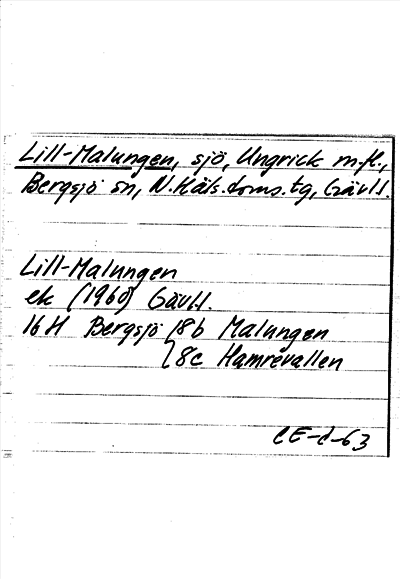 Lill-Malungen, sjö, Ungrick m.fl.,
Bergsjö sn, N.Häls.doms.tg, Gävl.l.
Lill-Malungen
ek (1960) Gävl.l.
16H Bergsjö 8b Malungen
8c Hamrevallen
CE-d-63